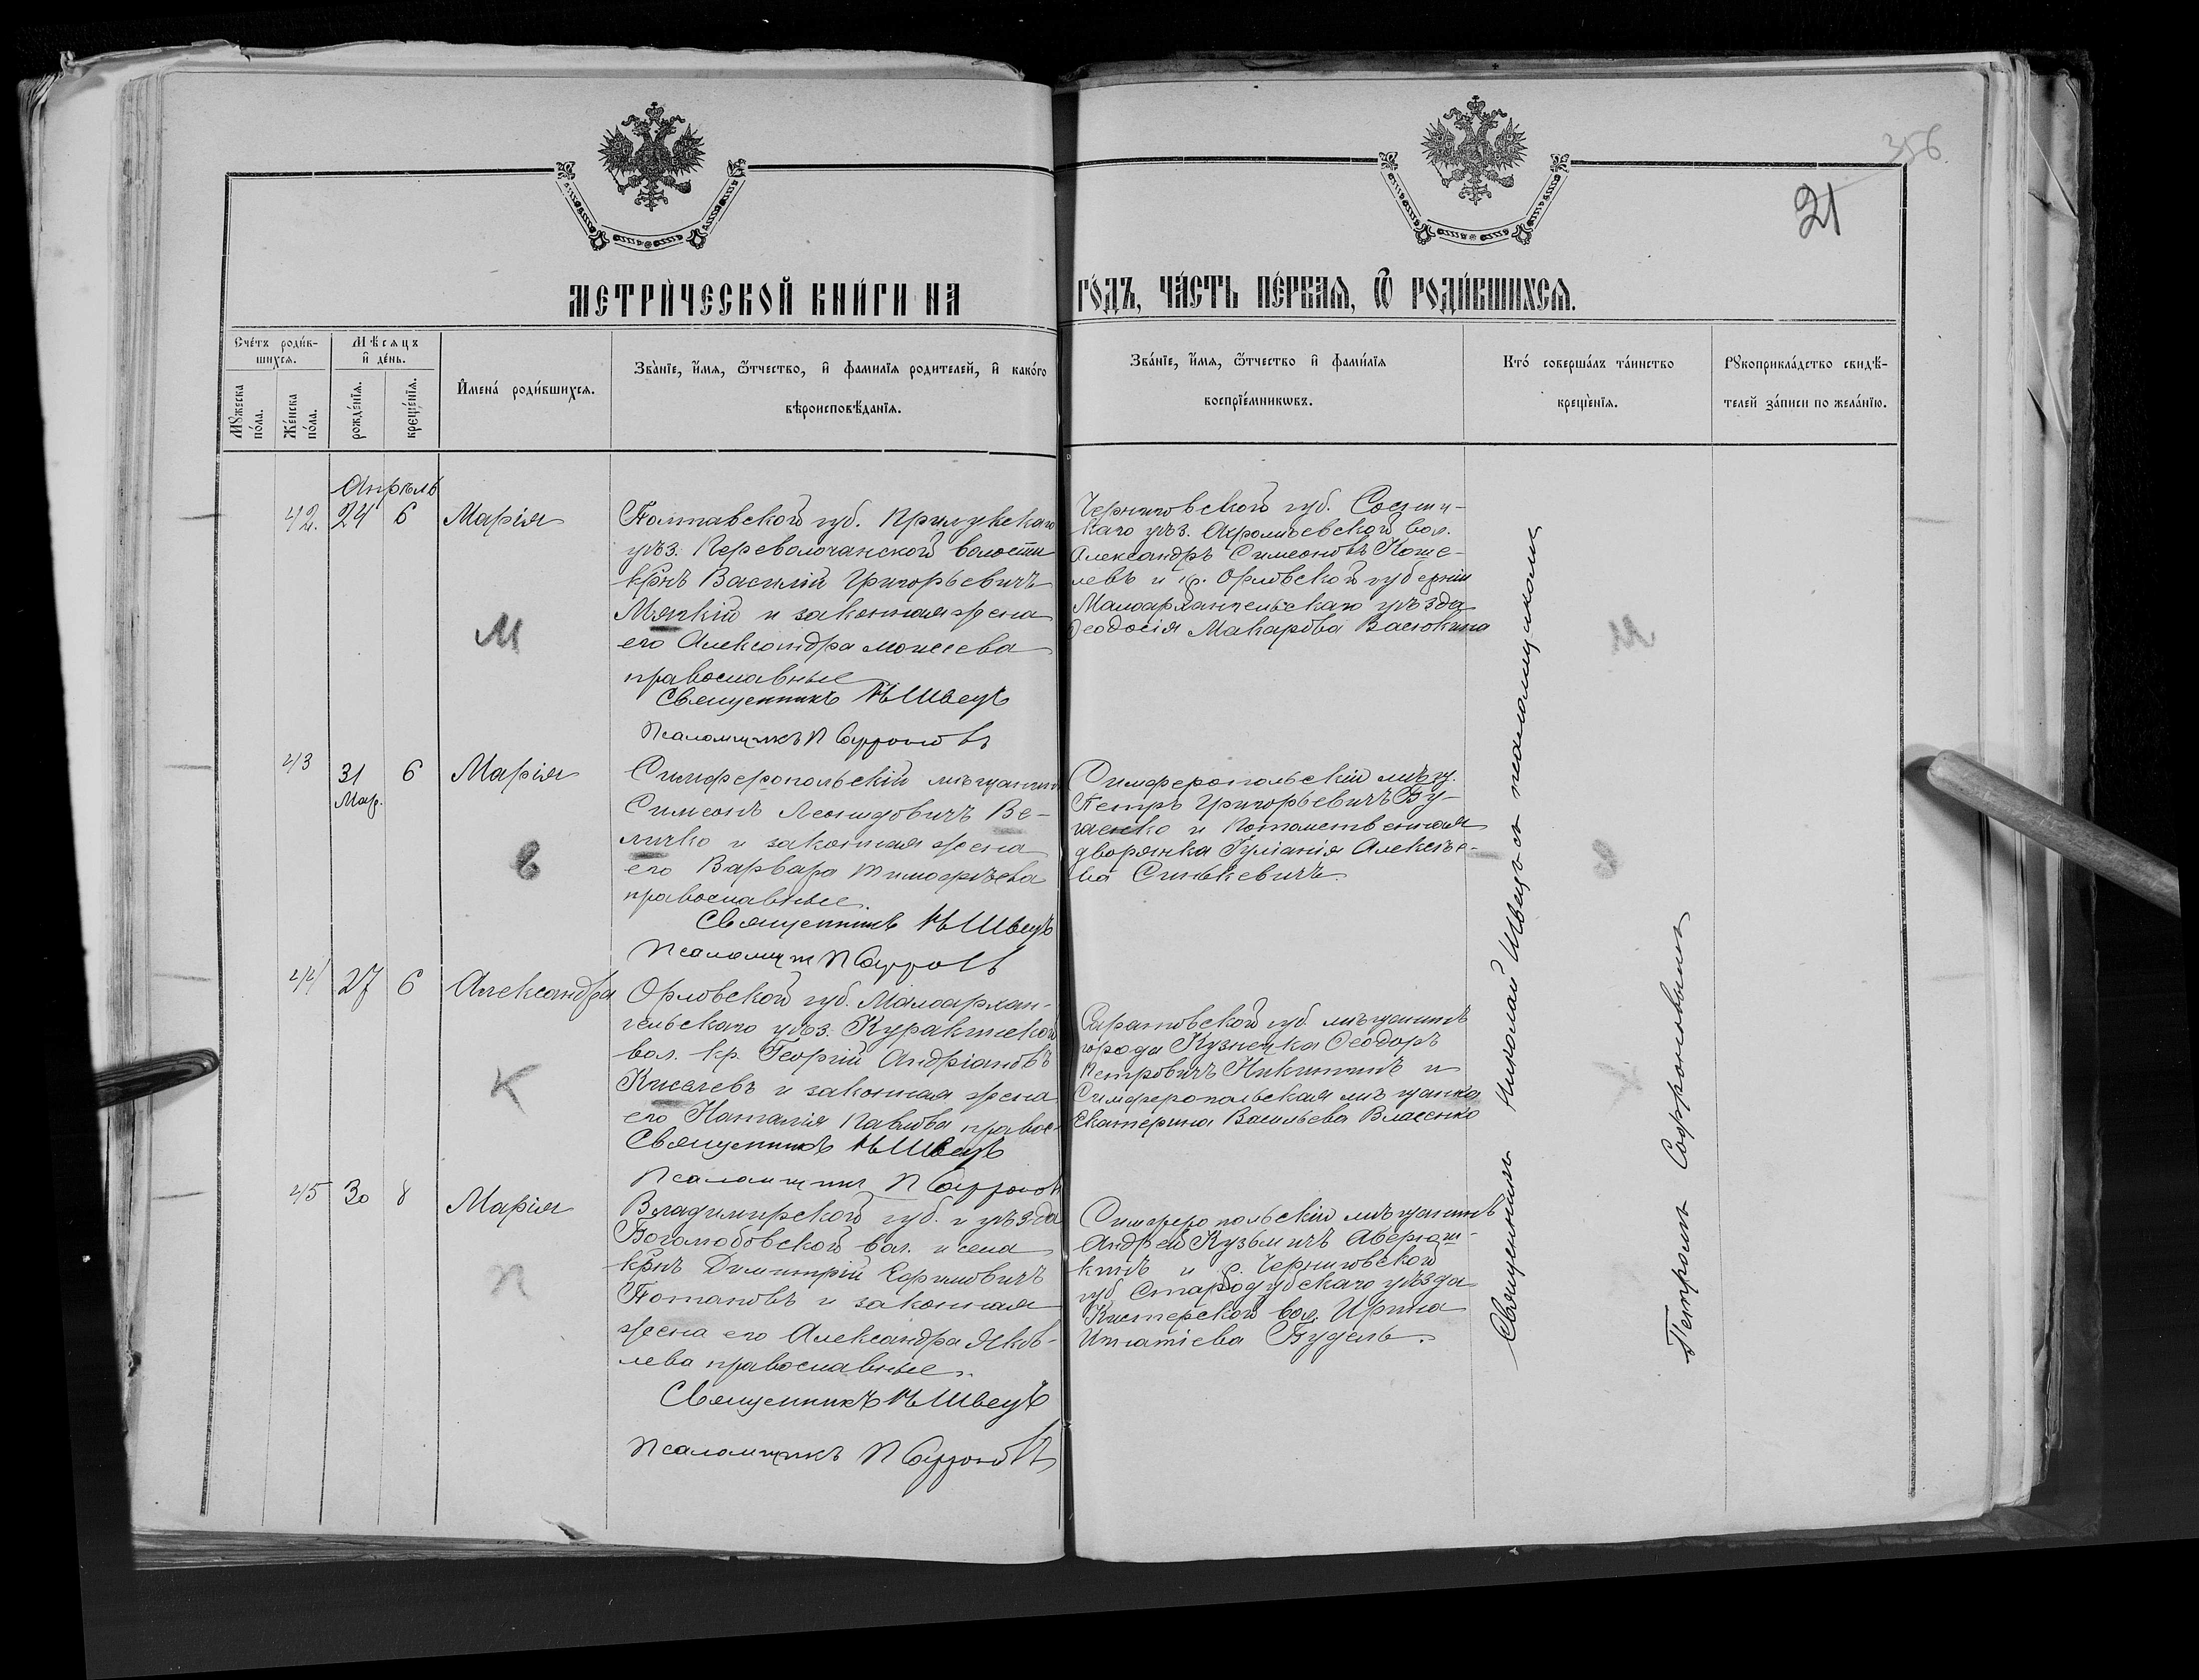 356.
21
МЕТРИ́ЧЕСКОЙ КНИ́ГИ НА ГО́ДЪ, ЧА́СТЬ ПЕ́РВАѦ, Ѿ РОДИ́ВШИХСѦ.
Сче́тъ роди́в-
шихсѧ.
Мѣсѧцъ
и҆ де́нь.
Мꙋжеска по́ла.
Же́нска по́ла.
рожде́нїѧ.
креще́нїѧ.
И҆мена́ роди́вшихсѧ.
Зва́нїе, и҆́мѧ, ѻ҆́тчество, и҆ фамилїѧ родителей, и҆ како́го
вѣроисповѣ́данїѧ.
Зва́нїе, и҆́мѧ, ѻ҆́тчество и҆ фами́лїѧ
воспрїе́мникѡвъ.
Кто́ соверша́лъ та́инство
креще́нїѧ.
Рꙋкоприкла́дство свидѣ́-
телей за́писи по жела́нїю.
Апрѣль
42. 24 6 Марія
Полтавской губ. Прилукскаго
уѣз. Переволочанской волости
крнъ Василій Григорьевичъ
Мяпкій и законная жена
его Александра Моисеева
православные
Священникъ Н Швецъ
Псаломщикъ П Софроновъ
М
Черниговской губ. Сосниц-
каго уѣз. вол.
Александръ Симеоновъ Коше-
левъ и кр. Орловской губерніи
Малоархангельскаго уѣзда
Ѳеодосія Макарова Васюкина
М
43 31 Мар. 6 Марія
Симферопольскій мѣщанинъ
Симеонъ Леонидовичъ Ве-
личко и законная жена
его Варвара Тимофѣева
православные.
Священникъ Н Швецъ
Псаломщ П Софро въ
В
Симферопольскій мѣщ.
Петръ Григорьевичъ Бу-
ценко и Потомственная
дворянка Іуліанія Алексѣе-
ва Синькевичъ
В
44 27 6 Александра
Орловской губ. Малоархан-
гельскаго уѣз. Куракинской
вол. кр. Георгій Андріановъ
Киселевъ и законная жена
его Наталія Павлова правос.
Священникъ Н Швецъ
Псаломщикъ П Софронов
К
Саратовской губ. мѣщанинъ
города Кузнецка Ѳеодоръ
Петровичъ Никитинъ и
Симферопольская мѣщанка
Екатерина Васильева Власенко
К
45 30 8 Марія
Владимирской губ. и уѣзда
Боголюбовской вол. и села
крнъ Димитрій Ефимовичъ
Потаповъ и законная
жена его Александра Яков-
лева православные.
Священникъ Н Швецъ
Псаломщикъ П Софроновъ
П
Симферопольскій мѣщанинъ
Андрей Кузьмичъ Аверюш-
кинъ и кр. Черниговской
губ Стародубскаго уѣзда
Кистерской вол. Ирина
Игнатіева Будель.
Священникъ Николай Швецъ съ псаломщикомъ
Петромъ Софроновымъ